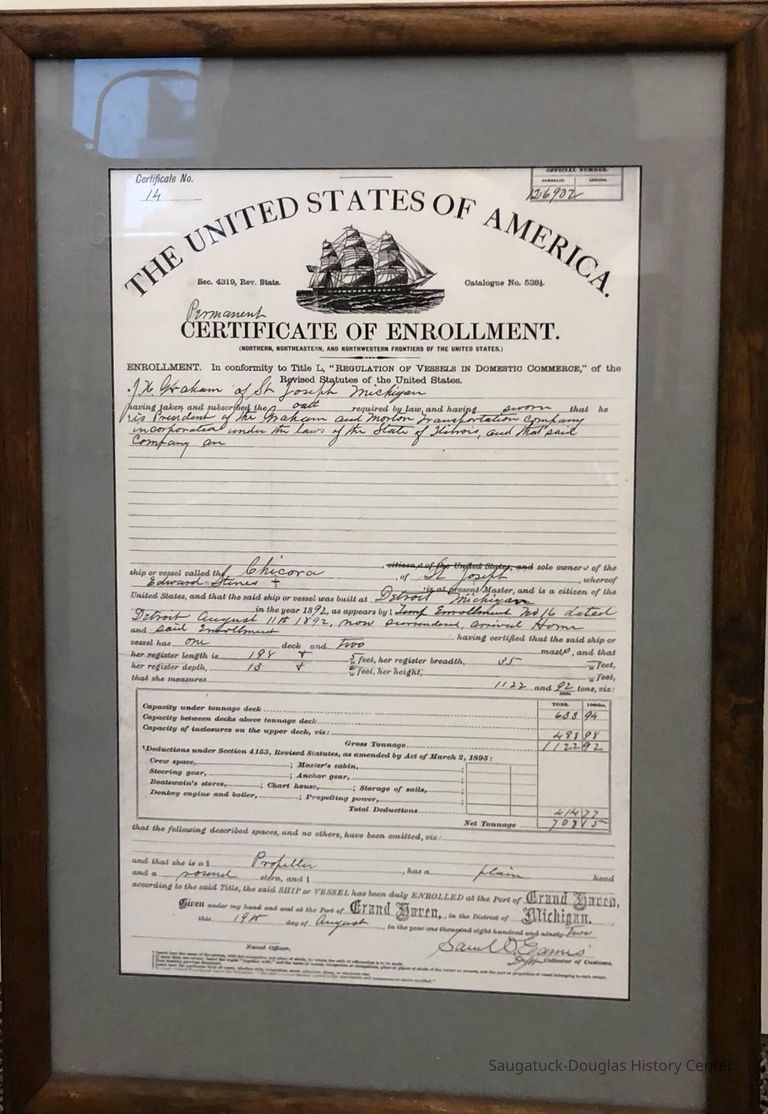 Certificate No.
14
OFFICIAL NUMBER.
NUMERALS. LETTERS.
126902
THE UNITED STATES OF AMERICA.
Sec. 4319, Rev. Stats.
Catalogue No. 538½.
Permanent
CERTIFICATE OF ENROLLMENT.
(NORTHERN, NORTHEASTERN, AND NORTHWESTERN FRONTIERS OF THE UNITED STATES.)
ENROLLMENT. In conformity to Title L, “REGULATION OF VESSELS IN DOMESTIC COMMERCE,” of the
Revised Statutes of the United States.
J.H. Graham of St Joseph Michigan
having taken and subscribed the oath required by law, and having sworn that he
is President of the Graham and Morton Transportation Company
incorporated under the laws of the State of Illinois, and that said
Company are
citizens of the United States, and sole owners of the
ship or vessel called the Chicora, of St Joseph, whereof
Edward Stines is at present Master, and is a citizen of the
United States, and that the said ship or vessel was built at Detroit Michigan
in the year 1892, as appears by Temp Enrollment No 16 dated
Detroit August 11th 1892, now surrendered, arrived Home
and said Enrollment having certified that the said ship or
vessel has one deck and two masts, and that
her register length is 198 feet, her register breadth, 35 feet,
her register depth, 13 feet, her height, feet,
that she measures 1122 and 92 tons, viz:
TONS. 100ths.
Capacity under tonnage deck
Capacity between decks above tonnage deck 633 94
Capacity of inclosures on the upper deck, viz: 488 98
Gross Tonnage 1122 92
Deductions under Section 4153, Revised Statutes, as amended by Act of March 2, 1895:
Crew space, ; Master's cabin, ;
Steering gear, ; Anchor gear, ;
Boatswain's stores, ; Chart house, ; Storage of sails, ;
Donkey engine and boiler, ; Propelling power, ;
Total Deductions 414 77
Net Tonnage 708 15
that the following described spaces, and no others, have been omitted, viz:
and that she is a Propeller, has a plain head
and a round stern, and
according to the said Title, the said SHIP or VESSEL has been duly ENROLLED at the Port of Grand Haven,
Given under my hand and seal at the Port of Grand Haven, in the District of Michigan.
this 19th day of August, in the year one thousand eight hundred and ninety Two
Naval Officer.
Collector of Customs.
Saugatuck-Douglas History Center